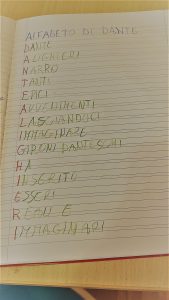 ALFABETO DI DANTE
DANTE
ALIGHIERI
NARRÒ
TANTE
EPICI
AVVENIMENTI
LASCIANDOCI
IMMAGINARE
GIRONI DANTESCHI
HA
INSERITO
ESSERI
REALI E
IMMAGINARI